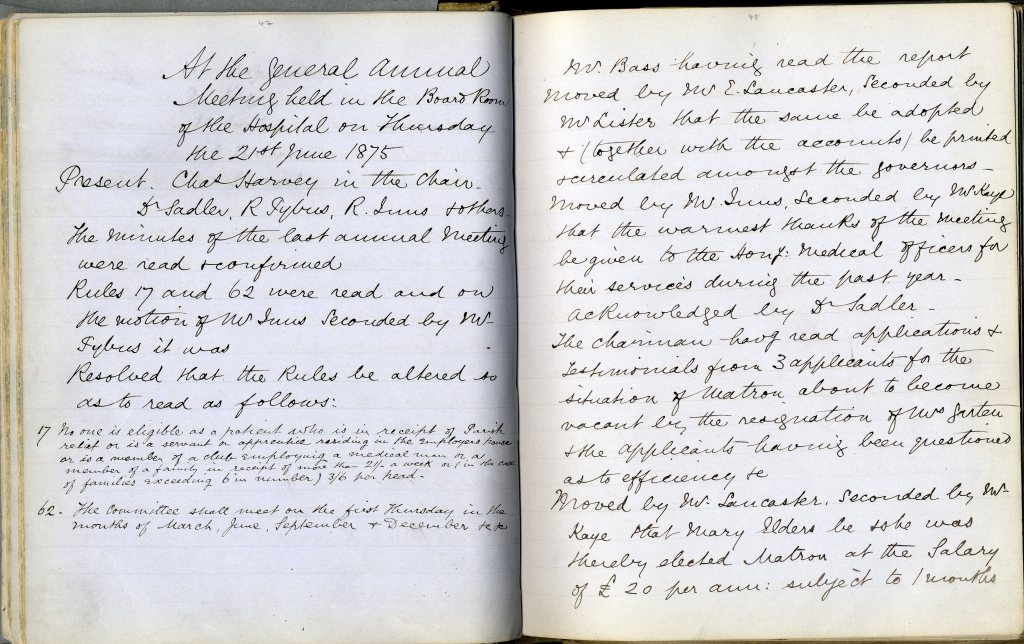 47
At the General Annual
Meeting held in the Board Room
of the Hospital on Thursday
the 21st June 1875
Present. Chas Harvey in the Chair.
Dr Sadler, R Fybus, R. Inns & others.
The minutes of the last annual Meeting
were read & confirmed
Rules 17 and 62 were read and on
the motion of Mr Inns Seconded by Mr
Fybus it was
Resolved that the Rules be altered so
as to read as follows:
17 No one is eligible as a patient who is in receipt of Parish
relief or is a servant or apprentice residing in the Employers house
or is a member of a club employing a medical man or a
member of a family in receipt of more than 21/- a week or (in the case
of families exceeding 6 in number) 3/6 per head.
62. The Committee shall meet on the first Thursday in the
months of March, June, September & December &c &c
48
Mr. Bass having read the report
Moved by Mr E. Lancaster, Seconded by
Mr Lister that the same be adopted
& (together with the accounts) be printed
& circulated amongst the governors.
Moved by Mr Inns, Seconded by Mr Kaye
that the warmest thanks of the Meeting
be given to the Hony: Medical officers for
their services during the past year.
acknowledged by Dr Sadler.
The chairman havg read applications &
Testimonials from 3 applicants for the
situation of Matron about to become
vacant by the resignation of Mrs
& the applicants having been questioned
as to efficiency &c
Moved by Mr. Lancaster, Seconded by Mr
Kaye that Mary Elders be & she was
thereby elected Matron at the Salary
of £ 20 per ann: subject to 1 months